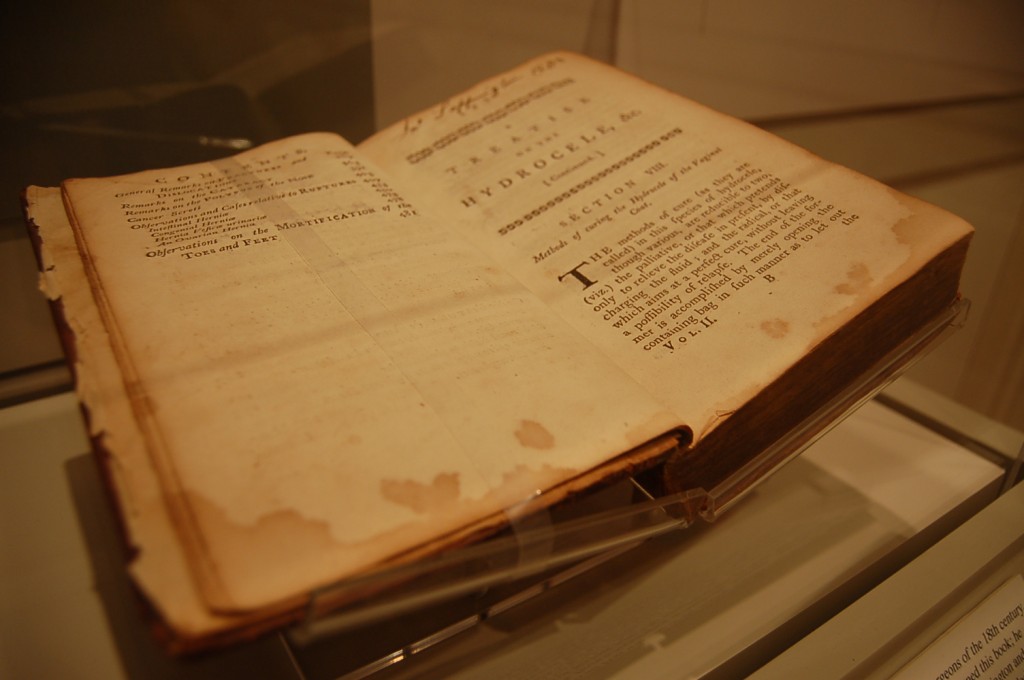 CONTENTS,
General Remarks on
Remarks on the
Remarks on the
Cancer Scroti
Observations and Cases relative to RUPTURES
Intestinal Herniæ
Congenial Herniæ
Hernia Vesicæ urinariæ
An Ovarian Hernia
Observations on the MORTIFICATION of the
TOES and FEET
A
TREATISE
ON THE
HYDROCELE, &c.
[Continued.]
SECTION VIII.
Methods of curing the Hydrocele of the Vaginal
Coat.
THE methods of cure (as they are
called) in this species of hydrocele,
though various, are reducible to two,
(viz.) the palliative, or that which pretends
only to relieve the disease in present, by dis-
charging the fluid; and the radical, or that
which aims at a perfect cure, without leaving
a possibility of relapse. The end of the for-
mer is accomplished by merely opening the
containing bag in such manner as to let out
VOL. II. B the
geons of the 18th century
ned this book; he
ington and